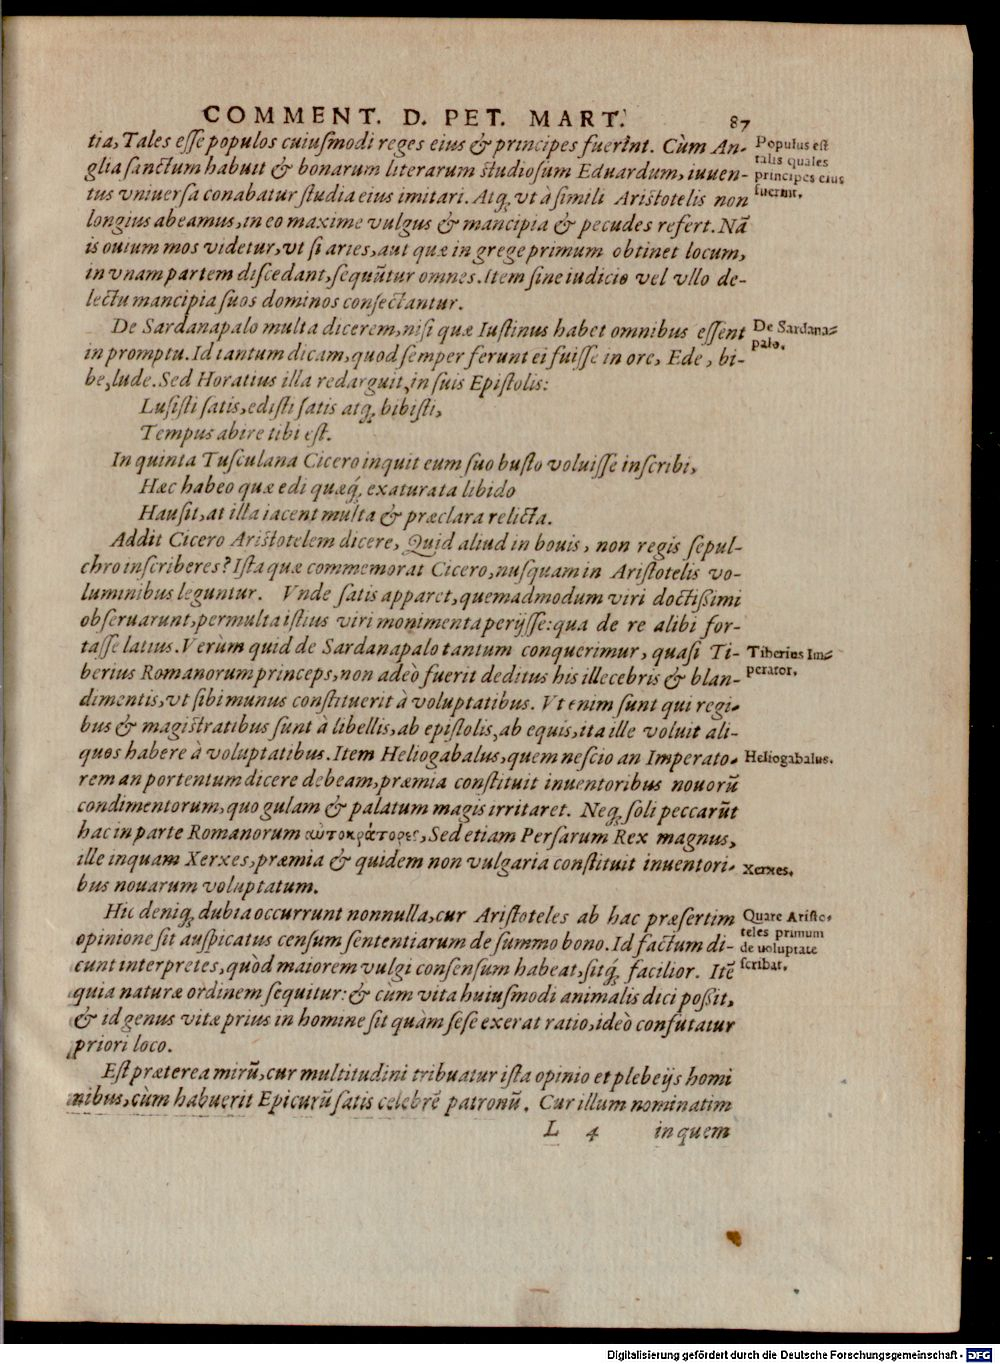 COMMENT. D. PET. MART. 87
tia, Tales esse populos cuiusmodi reges eius & principes fuerint. Cùm An-
glia sanctum habuit & bonarum literarum studiosum Eduardum, iuuen-
tus vniuersa conabatur studia eius imitari. Atq; vt à simili Aristotelis non
longius abeamus, in eo maxime vulgus & mancipia & pecudes refert. Nā
is ouium mos videtur, vt si aries, aut quæ in grege primum obtinet locum,
in vnam partem discedant, sequūtur omnes. Item sine iudicio vel vllo de-
lectu mancipia suos dominos consectantur.
Populus est
talis quales
principes eius
fuerint.
De Sardanapalo multa dicerem, nisi quæ Iustinus habet omnibus essent
in promptu. Id tantum dicam, quod semper ferunt ei fuisse in ore, Ede, bi-
be, lude. Sed Horatius illa redarguit, in suis Epistolis:
De Sardana-
palo.
Lusisti satis, edisti satis atq; bibisti,
Tempus abire tibi est.
In quinta Tusculana Cicero inquit eum suo busto voluisse inscribi,
Hæc habeo quæ edi quæq; exaturata libido
Hausit, at illa iacent multa & præclara relicta.
Addit Cicero Aristotelem dicere, Quid aliud in bouis, non regis sepul-
chro inscriberes? Ista quæ commemorat Cicero, nusquam in Aristotelis vo-
luminibus leguntur. Vnde satis apparet, quemadmodum viri doctißimi
obseruarunt, permulta istius viri monimenta perijsse: qua de re alibi for-
tasse latius. Verùm quid de Sardanapalo tantum conquerimur, quasi Ti-
berius Romanorum princeps, non adeò fuerit deditus his illecebris & blan-
dimentis, vt sibi munus constituerit à voluptatibus. Vt enim sunt qui regi-
bus & magistratibus sunt à libellis, ab epistolis, ab equis, ita ille voluit ali-
quos habere à voluptatibus. Item Heliogabalus, quem nescio an Imperato-
rem an portentum dicere debeam, præmia constituit inuentoribus nouorū
condimentorum, quo gulam & palatum magis irritaret. Neq; soli peccarūt
hac in parte Romanorum αὐτοκράτορες, Sed etiam Persarum Rex magnus,
ille inquam Xerxes, præmia & quidem non vulgaria constituit inuentori-
bus nouarum voluptatum.
Tiberius Im-
perator.
Heliogabalus.
Xerxes.
Hic deniq; dubia occurrunt nonnulla, cur Aristoteles ab hac præsertim
opinione sit auspicatus censum sententiarum de summo bono. Id factum di-
cunt interpretes, quòd maiorem vulgi consensum habeat, sitq; facilior. Itē
quia naturæ ordinem sequitur: & cùm vita huiusmodi animalis dici poßit,
& id genus vitæ prius in homine sit quàm sese exerat ratio, ideò confutatur
priori loco.
Quare Aristo-
teles primum
de voluptate
scribat.
Est præterea mirū, cur multitudini tribuatur ista opinio et plebeijs homi
nibus, cùm habuerit Epicurū satis celebrē patronū. Cur illum nominatim
L 4 in quem
Digitalisierung gefördert durch die Deutsche Forschungsgemeinschaft - DFG